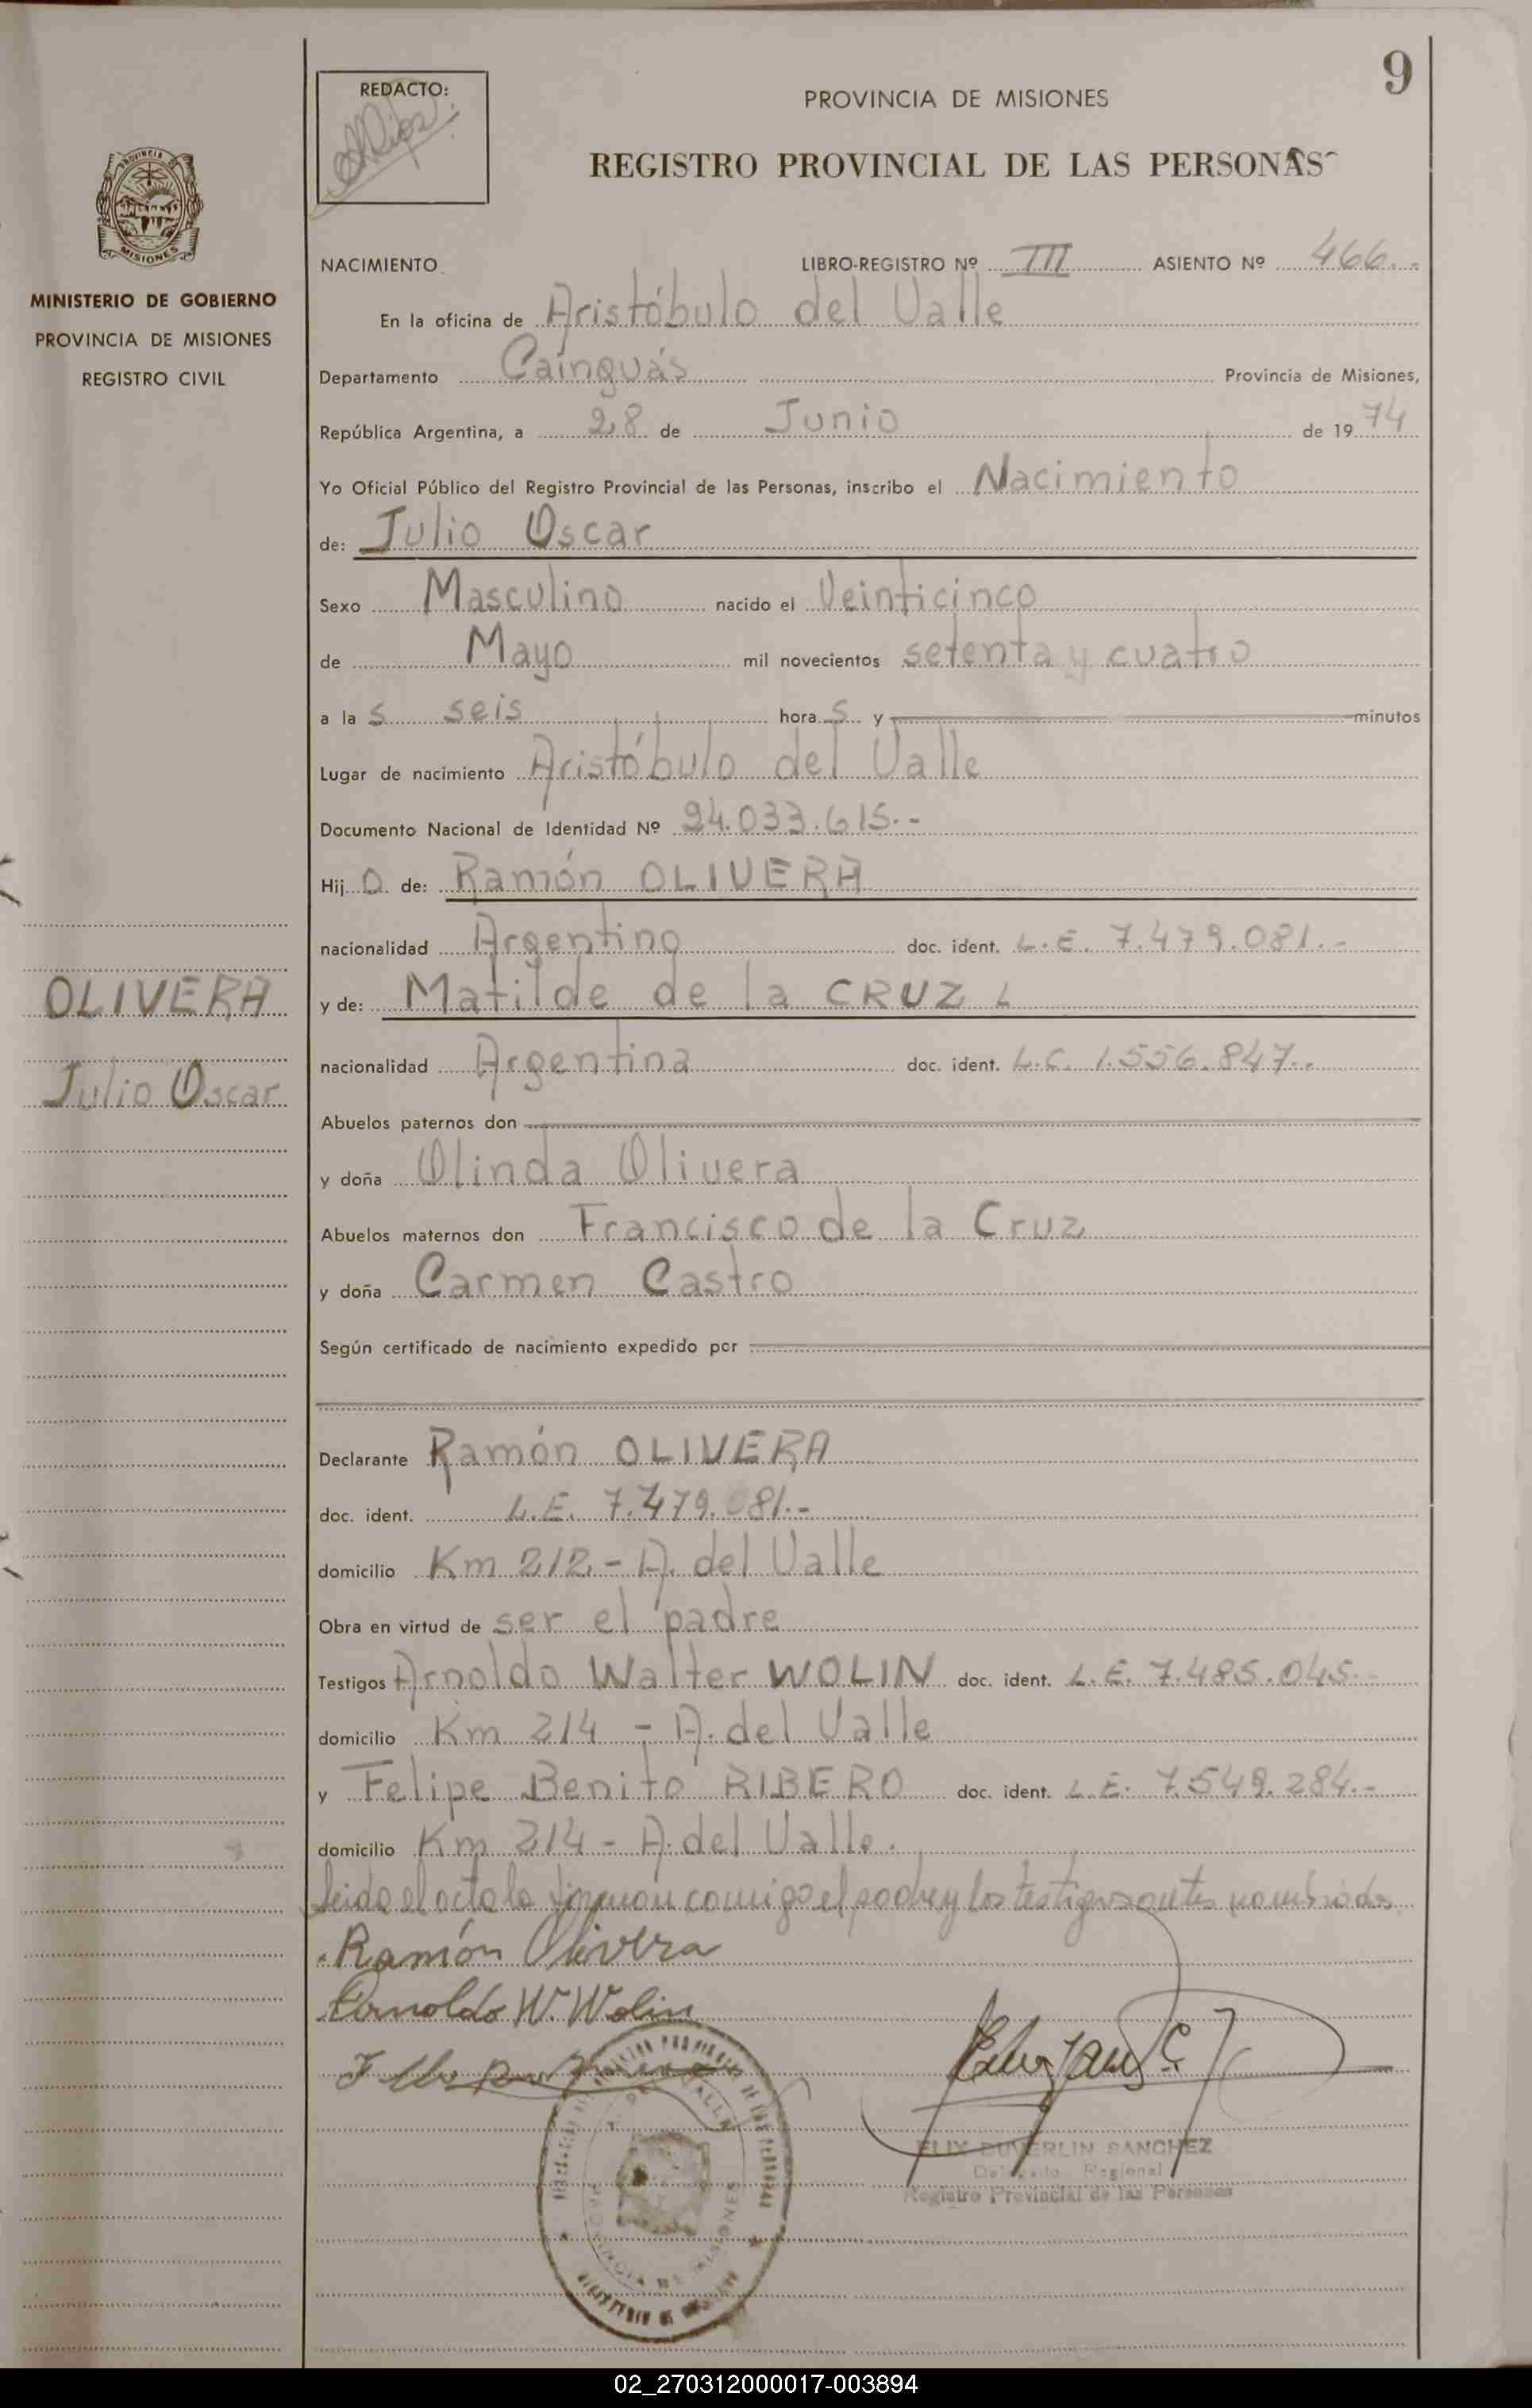 9
REDACTO:
PROVINCIA DE MISIONES
REGISTRO PROVINCIAL DE LAS PERSONAS
PROVINCIA DE
MISIONES
MINISTERIO DE GOBIERNO
PROVINCIA DE MISIONES
REGISTRO CIVIL
NACIMIENTO LIBRO-REGISTRO Nº III ASIENTO Nº 466.-
En la oficina de Aristóbulo del Valle
Departamento Cainguás Provincia de Misiones,
República Argentina, a 28 de Junio de 1974
Yo Oficial Público del Registro Provincial de las Personas, inscribo el Nacimiento
de: Julio Oscar
Sexo Masculino nacido el Veinticinco
de Mayo mil novecientos setenta y cuatro
a las seis horas y minutos
Lugar de nacimiento Aristóbulo del Valle
Documento Nacional de Identidad Nº 24.033.615.-
Hijo de: Ramón OLIVERA
nacionalidad Argentino doc. ident. L.E. 7.479.081.-
OLIVERA
y de: Matilde de la CRUZ
nacionalidad Argentina doc. ident. L.C. 1.556.847.-
Julio Oscar
Abuelos paternos don
y doña Olinda Olivera
Abuelos maternos don Francisco de la Cruz
y doña Carmen Castro
Según certificado de nacimiento expedido por
Declarante Ramón OLIVERA
doc. ident. L.E. 7.479.081.-
domicilio Km 212 - A. del Valle
Obra en virtud de ser el padre
Testigos Arnoldo Walter WOLIN doc. ident. L.E. 7.485.045.-
domicilio Km 214 - A. del Valle
y Felipe Benito RIBERO doc. ident. L.E. 7.549.284.-
domicilio Km 214 - A. del Valle.
Leida el acta la firman conmigo el padre y los testigos antes nombrados.
Ramón Olivera
Arnoldo W. Wolin
SANCHEZ
Delegado Regional
Registro Provincial de las Personas
02_270312000017-003894